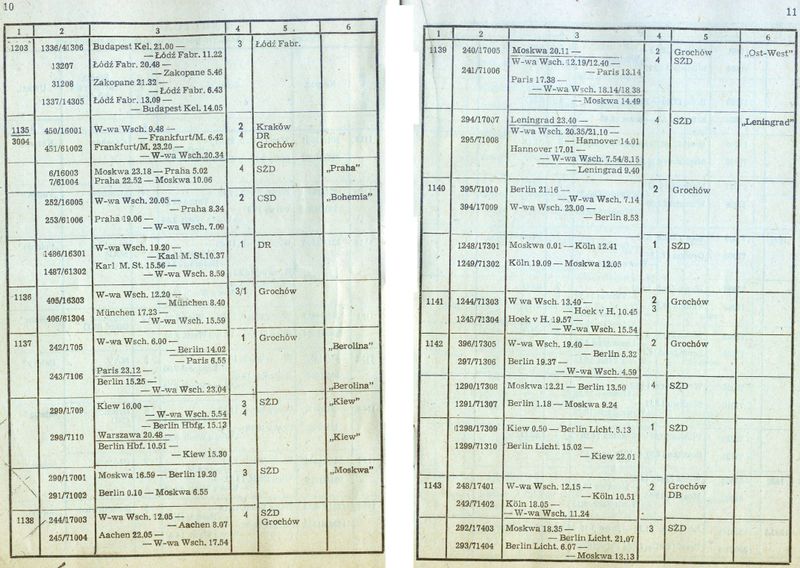 10
1 2 3 4 5 6
1203 1336/41306 Budapest Kel. 21.00 — 3 Łódź Fabr.
— Łódź Fabr. 11.22
13207 Łódź Fabr. 20.48 —
— Zakopane 5.46
31208 Zakopane 21.32 —
— Łódź Fabr. 6.43
1337/14305 Łódź Fabr. 13.09 —
— Budapest Kel. 14.05
1135 450/16001 W-wa Wsch. 9.48 — 2 Kraków
3004 — Frankfurt/M. 6.42 4 DR
451/61002 Frankfurt/M. 23.20 — Grochów
— W-wa Wsch.20.34
6/16003 Moskwa 23.18 — Praha 5.02 4 SŻD „Praha”
7/61004 Praha 22.52 — Moskwa 10.06
252/16005 W-wa Wsch. 20.05 — 2 CSD „Bohemia”
— Praha 8.34
253/61006 Praha 19.06 —
— W-wa Wsch. 7.09
W-wa Wsch. 19.20 — 1 DR
1486/16301 — Kaal M. St.10.37
Karl M. St. 15.56 —
1487/61302 — W-wa Wsch. 8.59
1136 W-wa Wsch. 12.20 — 3/1 Grochów
405/16303 — München 8.40
München 17.23 —
406/61304 — W-wa Wsch. 15.59
1137 W-wa Wsch. 6.00 — 1 Grochów
242/1705 — Berlin 14.02 „Berolina”
— Paris 6.55
Paris 23.12 —
243/7106 Berlin 15.25 —
— W-wa Wsch. 23.04 „Berolina”
Kiew 16.00 — 3 SŻD „Kiew”
299/1709 — W-wa Wsch. 5.54 4
— Berlin Hbfg. 15.13
298/7110 Warszawa 20.48 — „Kiew”
Berlin Hbf. 10.51 —
— Kiew 15.30
290/17001 Moskwa 16.59 — Berlin 19.20 3 SŻD „Moskwa”
291/71002 Berlin 0.10 — Moskwa 6.55
1138 244/17003 W-wa Wsch. 12.05 — 4 SŻD
— Aachen 8.07 Grochów
245/71004 Aachen 22.05 —
— W-wa Wsch. 17.54
11
1 2 3 4 5 6
1139 240/17005 Moskwa 20.11 — 2 Grochów „Ost-West”
W-wa Wsch. 12.19/12.40 — 4 SŻD
241/71006 — Paris 13.14
Paris 17.38 —
— W-wa Wsch. 18.14/18.38
— Moskwa 14.49
294/17007 Leningrad 23.40 — 4 SŻD „Leningrad”
W-wa Wsch. 20.35/21.10 —
295/71008 — Hannover 14.01
Hannover 17.01 —
— W-wa Wsch. 7.54/8.15
— Leningrad 9.40
1140 395/71010 Berlin 21.16 — 2 Grochów
— W-wa Wsch. 7.14
394/17009 W-wa Wsch. 23.00 —
— Berlin 8.53
1248/17301 Moskwa 0.01 — Köln 12.41 1 SŻD
1249/71302 Köln 19.09 — Moskwa 12.05
1141 1244/71303 W wa Wsch. 13.40 — 2 Grochów
— Hoek v H. 10.45 3
1245/71304 Hoek v H. 19.57 —
— W-wa Wsch. 15.54
1142 396/17305 W-wa Wsch. 19.40 — 2 Grochów
— Berlin 5.32
297/71306 Berlin 19.37 —
— W-wa Wsch. 4.59
1290/17308 Moskwa 12.21 — Berlin 13.50 4 SŻD
1291/71307 Berlin 1.18 — Moskwa 9.24
1298/17309 Kiew 0.50 — Berlin Licht. 5.13 1 SŻD
1299/71310 Berlin Licht. 15.02 —
— Kiew 22.01
1143 248/17401 W-wa Wsch. 12.15 — 2 Grochów
— Köln 10.51 DB
249/71402 Köln 18.05 —
— W-wa Wsch. 11.24
292/17403 Moskwa 18.35 — 3 SŻD
— Berlin Licht. 21.07
293/71404 Berlin Licht. 6.07 —
— Moskwa 13.13